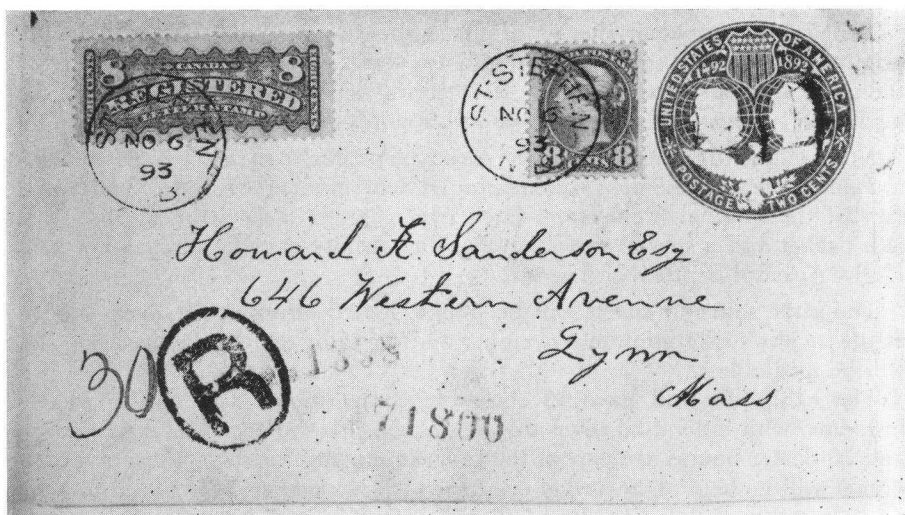 CANADA
8 REGISTERED 8
ST. STEPHEN
NO 6
93
N.B.
ST. STEPHEN
NO 6
93
N.B.
8 CENTS 8
UNITED STATES OF AMERICA
1492 1892
POSTAGE TWO CENTS
Howard K. Sanderson Esq
646 Western Avenue
Lynn
Mass
30
R
71800